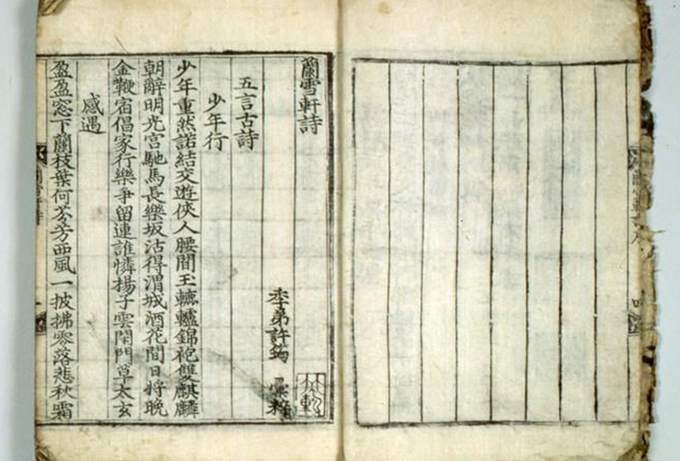 蘭雪軒詩
季弟許筠 彙粹
五言古詩
少年行
少年重然諾結交遊俠人腰間玉轆轤錦袍雙麒麟
朝辭明光宮馳馬長樂坂沽得渭城酒花間日將晩
金鞭宿倡家行樂爭留連誰憐揚子雲閑門草太玄
感遇
盈盈窓下蘭枝葉何芬芳西風一披拂零落悲秋霜